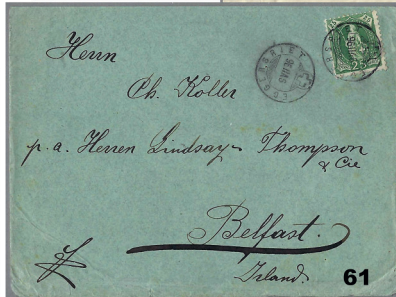 Herrn
Ch. Koller
p. a. Herren Lindsay - Thompson
& Cie
Belfast.
Irland.
61